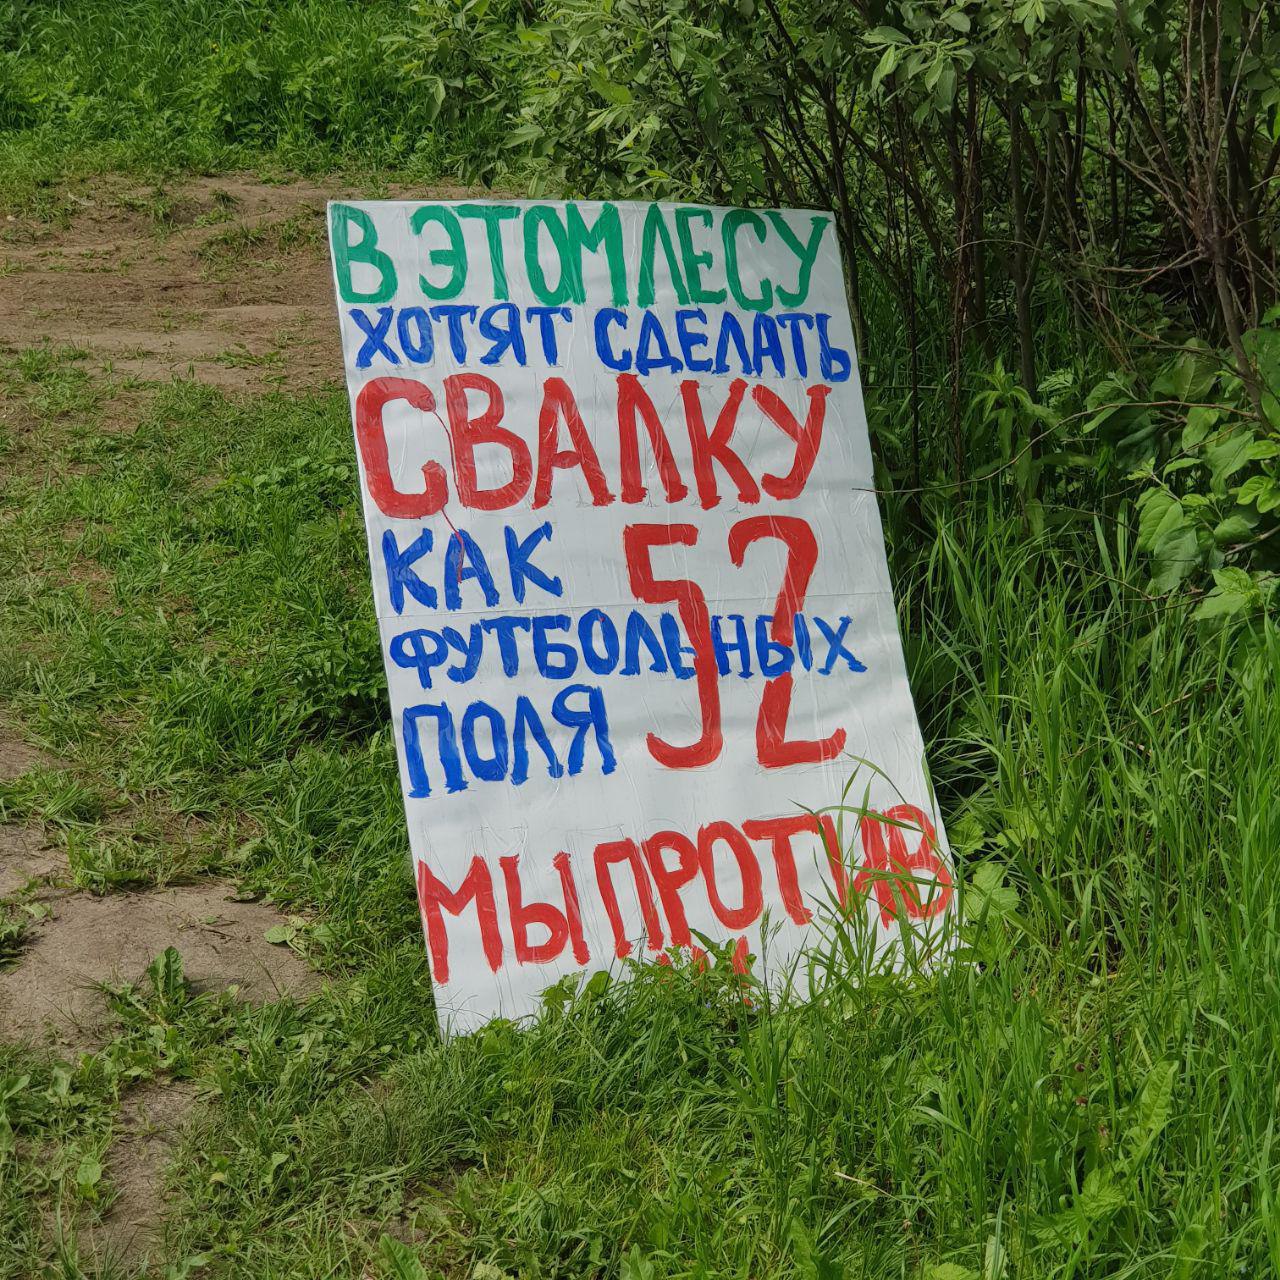 В ЭТОМ ЛЕСУ
ХОТЯТ СДЕЛАТЬ
СВАЛКУ
КАК 52
ФУТБОЛЬНЫХ
ПОЛЯ
МЫ ПРОТИВ